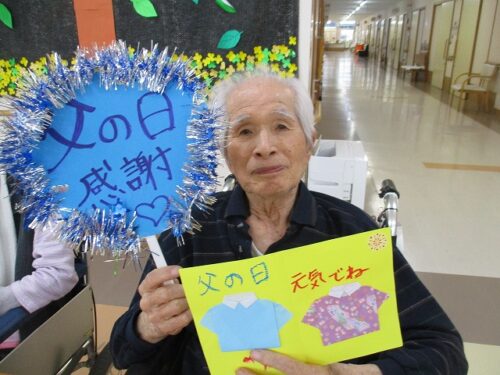 父の日
感謝
父の日
元気でね